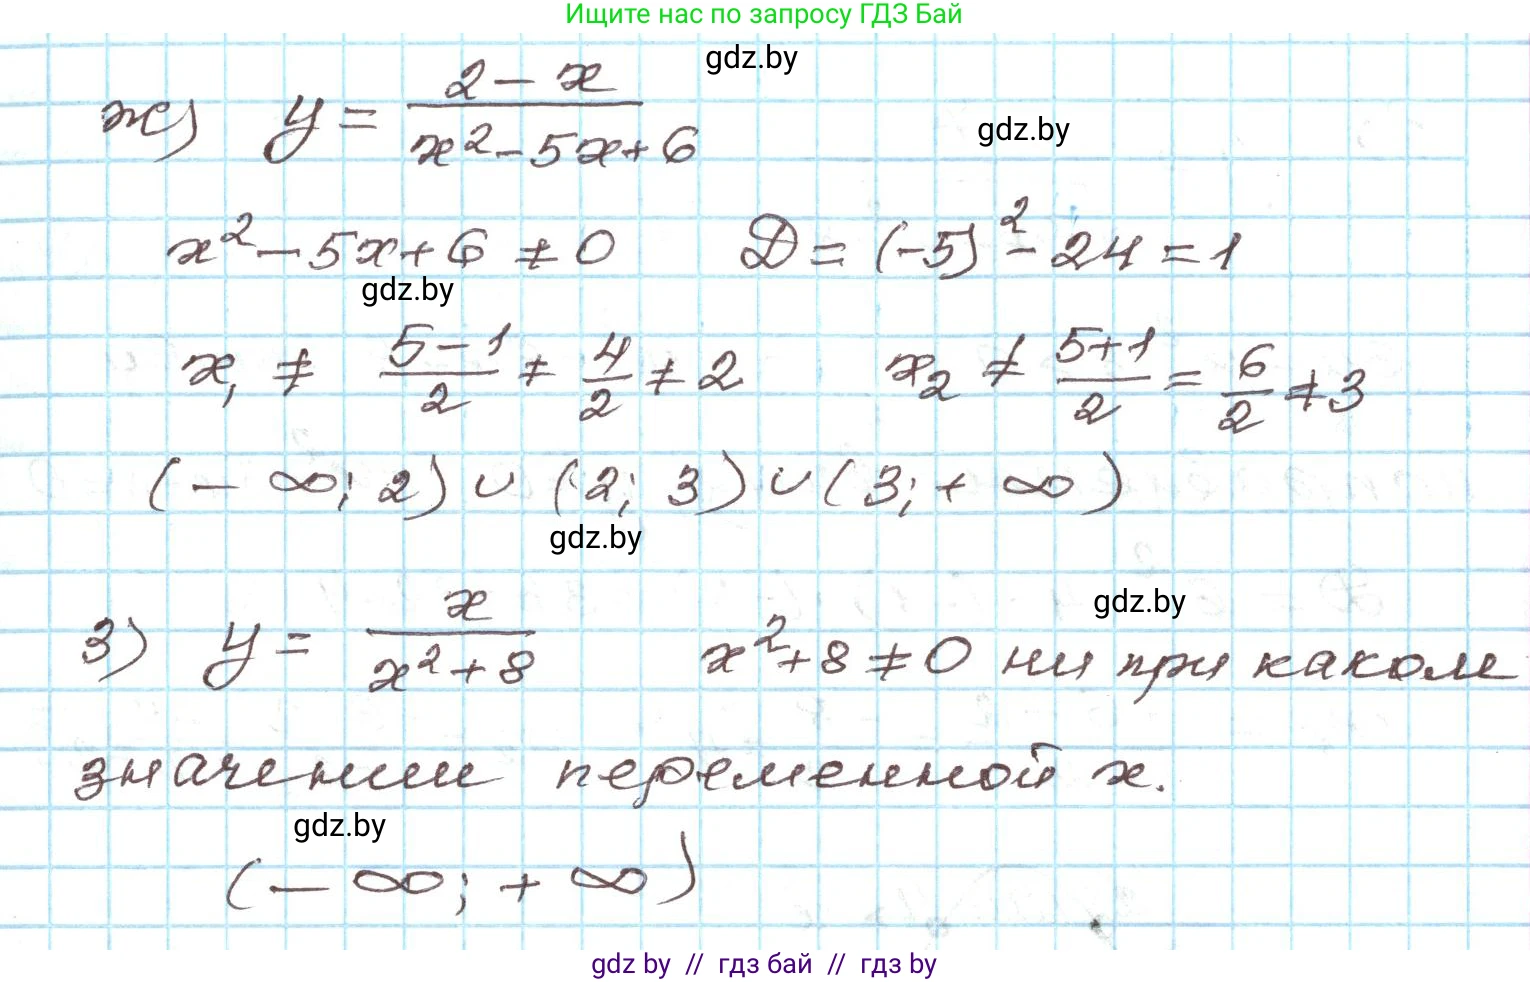 Ищите нас по запросу ГДЗ Бай
gdz.by
ж) y = (2 - x) / (x² - 5x + 6)
gdz.by
x² - 5x + 6 ≠ 0   D = (-5)² - 24 = 1
gdz.by
x₁ ≠ (5 - 1)/2 ≠ 4/2 ≠ 2   x₂ ≠ (5 + 1)/2 = 6/2 ≠ 3
(-∞; 2) ∪ (2; 3) ∪ (3; +∞)
gdz.by
gdz.by
з) y = x / (x² + 8)   x² + 8 ≠ 0 ни при каком
значении переменной x.
gdz.by
(-∞; +∞)
gdz by // гдз бай // гдз by